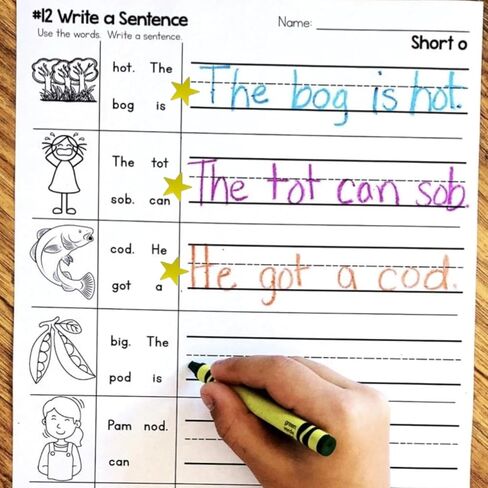 #12 Write a Sentence
Name:
Use the words. Write a sentence.
Short o
hot. The
bog is
The bog is hot.
The tot
sob. can
The tot can sob.
cod. He
got a
He got a cod.
big. The
pod is
Pam nod.
can
green